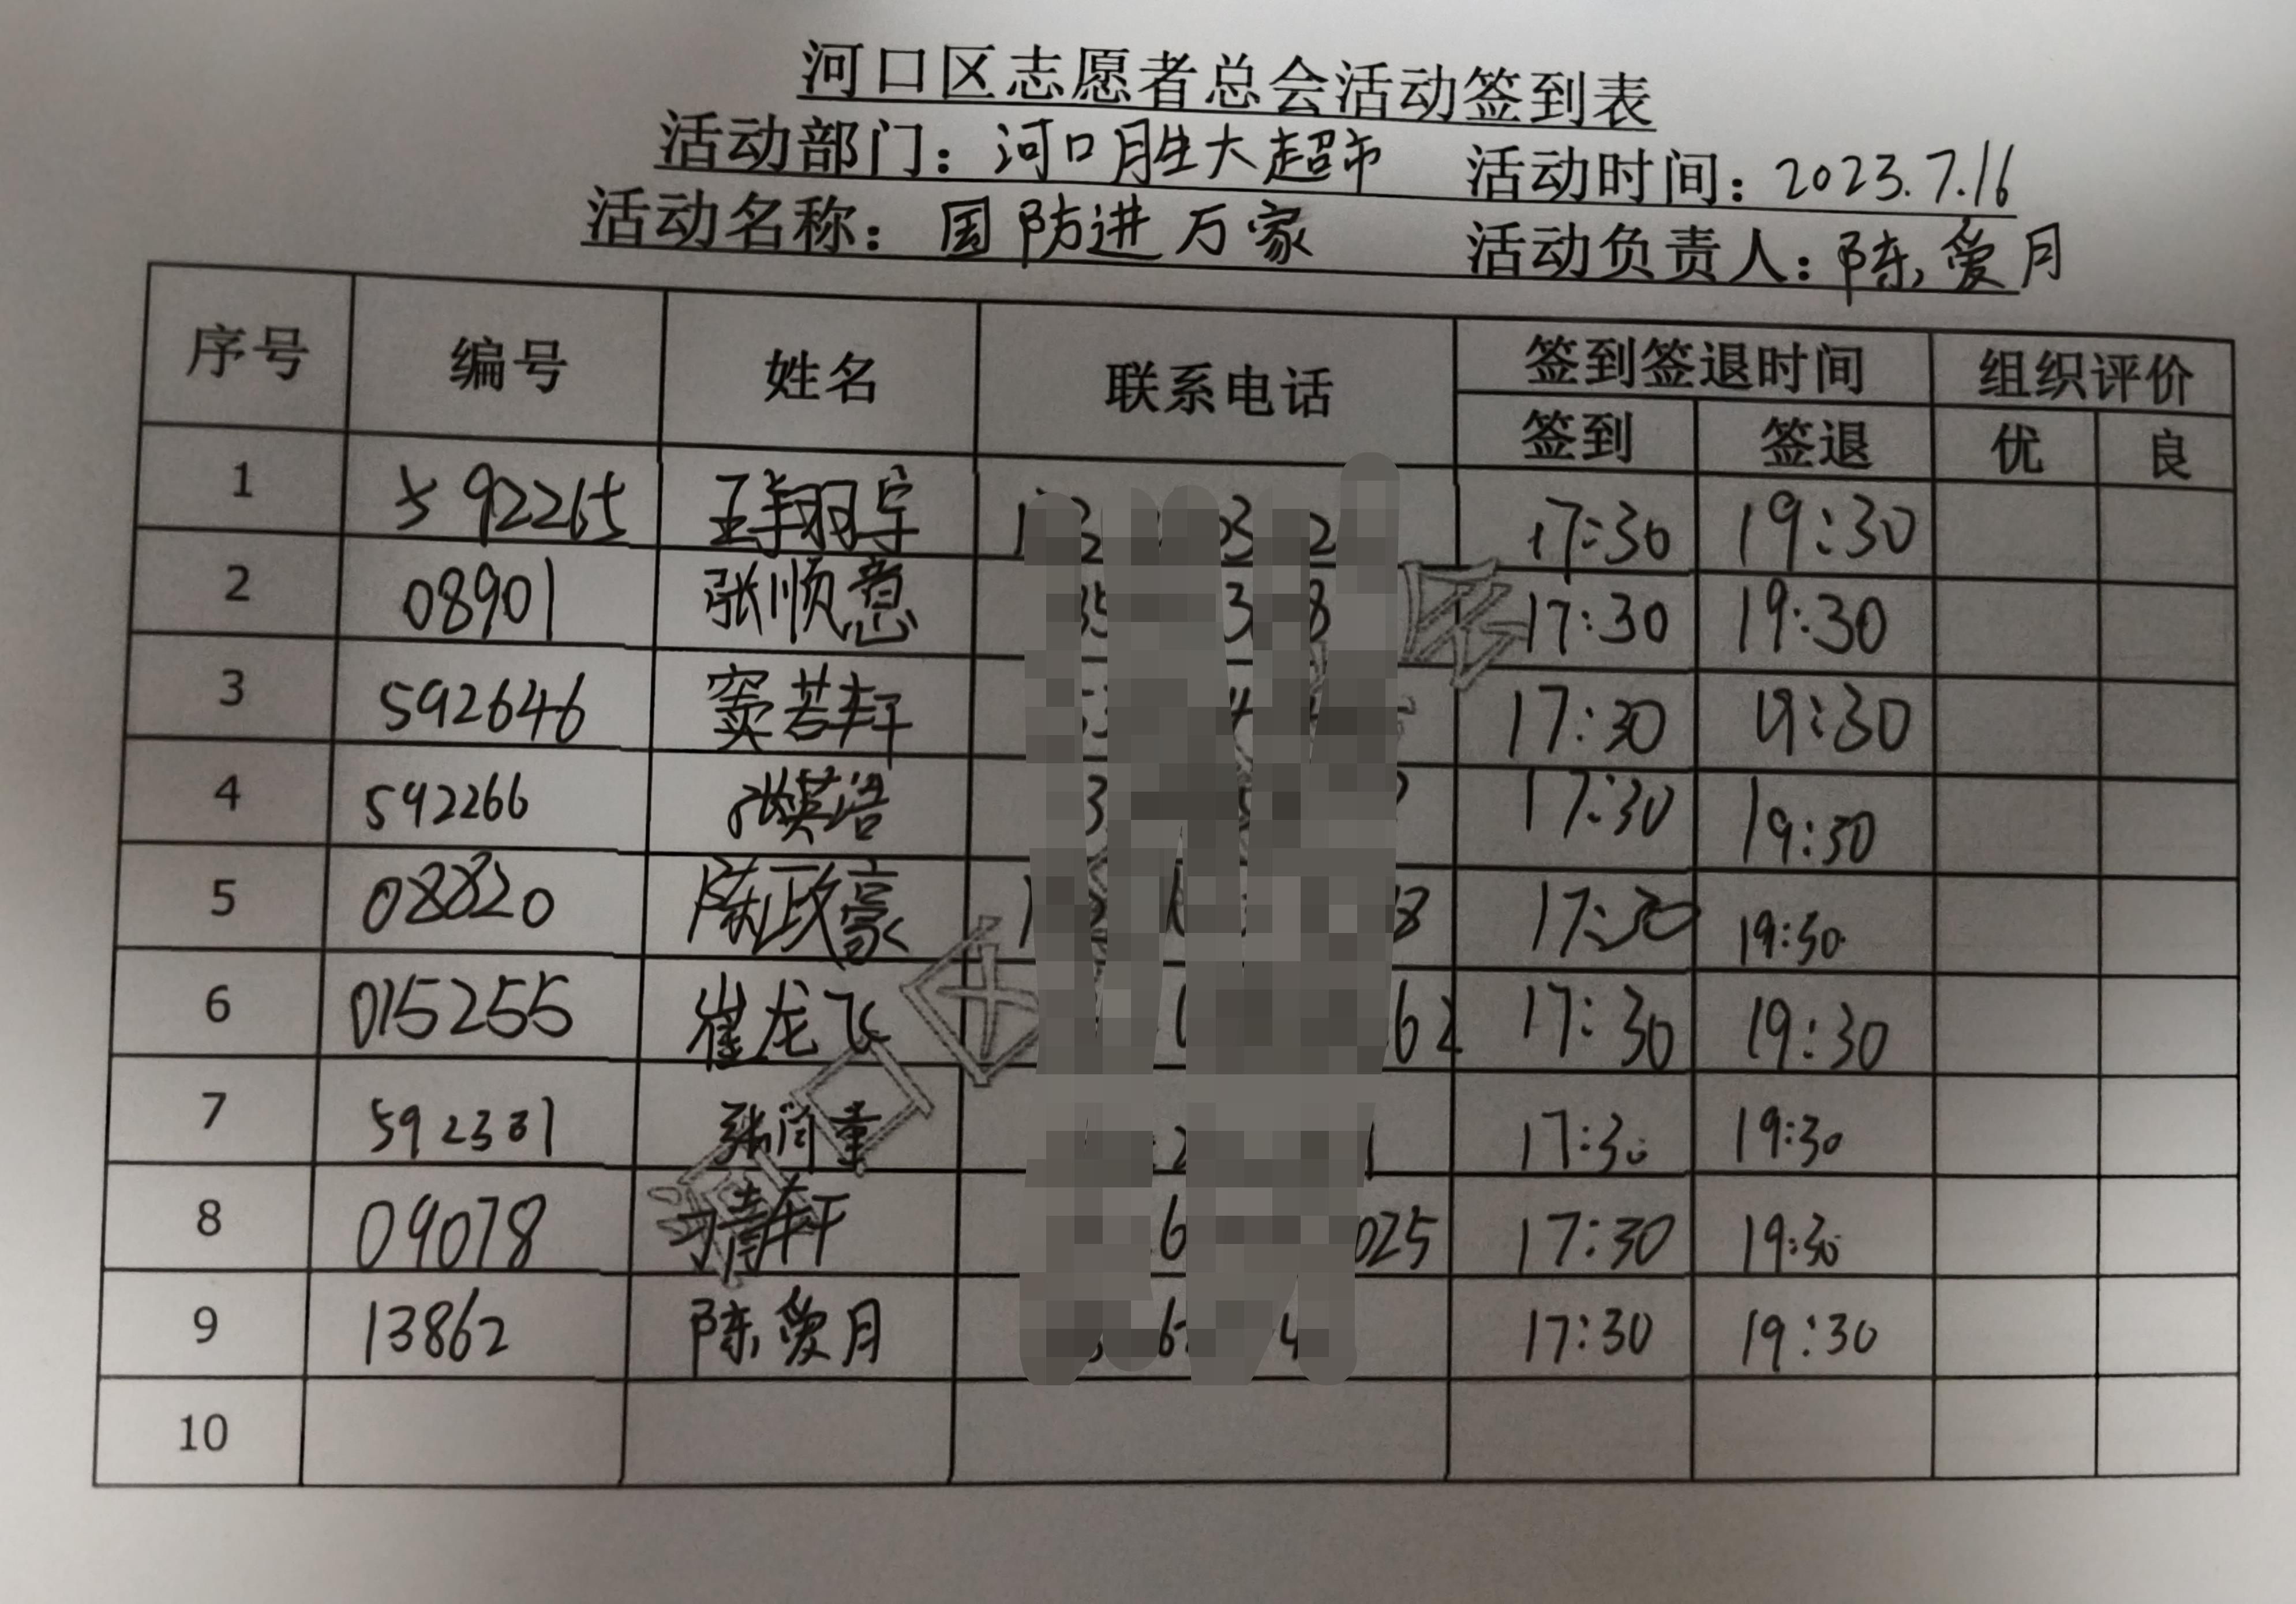 河口区志愿者总会活动签到表
活动部门：河口胜大超市 活动时间：2023.7.16
活动名称：国防进万家 活动负责人：陈爱月
序号 编号 姓名 联系电话 签到签退时间 组织评价
签到 签退 优 良
1 592265 王翔宇 17:30 19:30
2 08901 张顺意 17:30 19:30
3 592646 窦若轩 17:30 19:30
4 592266 张英浩 17:30 19:30
5 08820 陈政豪 17:30 19:30
6 015255 崔龙飞 17:30 19:30
7 592381 17:30 19:30
8 09078 17:30 19:30
9 13862 陈爱月 17:30 19:30
10